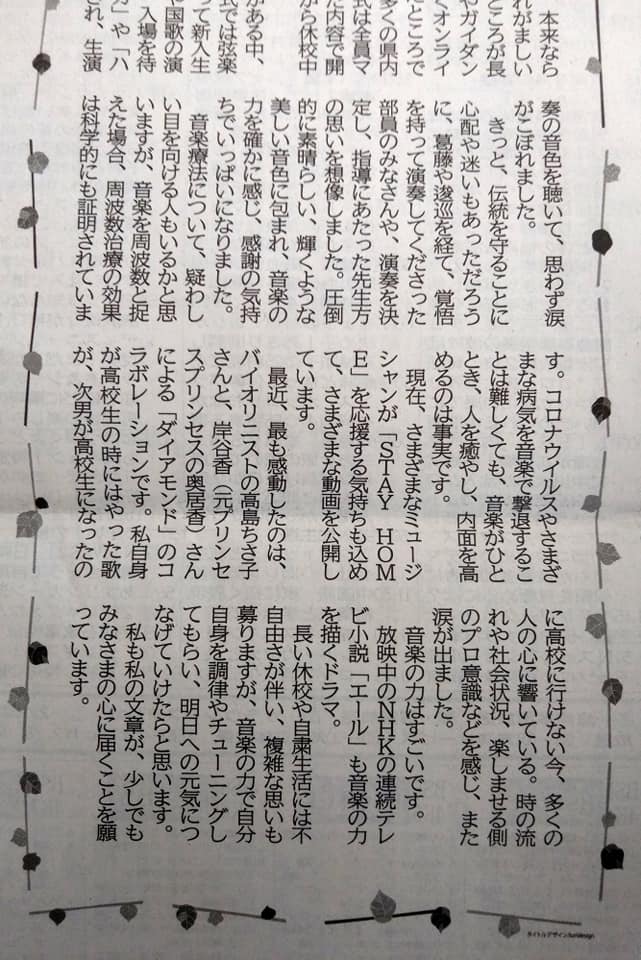 本来なら
れがましい
ところが長
やガイダン
くオンライ
たところで
多くの県内
式は全員マ
た内容で開
から休校中
がある中、
式では弦楽
って新入生
や国歌の演
入場を待
」や「ハ
され、生演
奏の音色を聴いて、思わず涙
がこぼれました。
きっと、伝統を守ることに
心配や迷いもあっただろう
に、葛藤や逡巡を経て、覚悟
を持って演奏してくださった
部員のみなさんや、演奏を決
定し、指導にあたった先生方
の思いを想像しました。圧倒
的に素晴らしい、輝くような
美しい音色に包まれ、音楽の
力を確かに感じ、感謝の気持
ちでいっぱいになりました。
音楽療法について、疑わし
い目を向ける人もいるかと思
いますが、音楽を周波数と捉
えた場合、周波数治療の効果
は科学的にも証明されていま
す。コロナウイルスやさまざ
まな病気を音楽で撃退するこ
とは難しくても、音楽がひと
とき、人を癒やし、内面を高
めるのは事実です。
現在、さまざまなミュージ
シャンが「STAY HOM
E」を応援する気持ちも込め
て、さまざまな動画を公開し
ています。
最近、最も感動したのは、
バイオリニストの高島ちさ子
さんと、岸谷香（元プリンセ
スプリンセスの奥居香）さん
による「ダイアモンド」のコ
ラボレーションです。私自身
が高校生の時にはやった歌
が、次男が高校生になったの
に高校に行けない今、多くの
人の心に響いている。時の流
れや社会状況、楽しませる側
のプロ意識などを感じ、また
涙が出ました。
音楽の力はすごいです。
放映中のNHKの連続テレ
ビ小説「エール」も音楽の力
を描くドラマ。
長い休校や自粛生活には不
自由さが伴い、複雑な思いも
募りますが、音楽の力で自分
自身を調律やチューニングし
てもらい、明日への元気につ
なげていけたらと思います。
私も私の文章が、少しでも
みなさまの心に届くことを願
っています。
タイトルデザイン